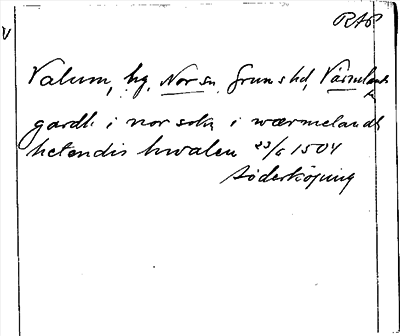 RAP
V
Valum, hg, Nor sn, Grums hd, Värmlands
l.
gardh i nor sokn i wærmelandh
hetendis hwalen 23/6 1504
Söderköping